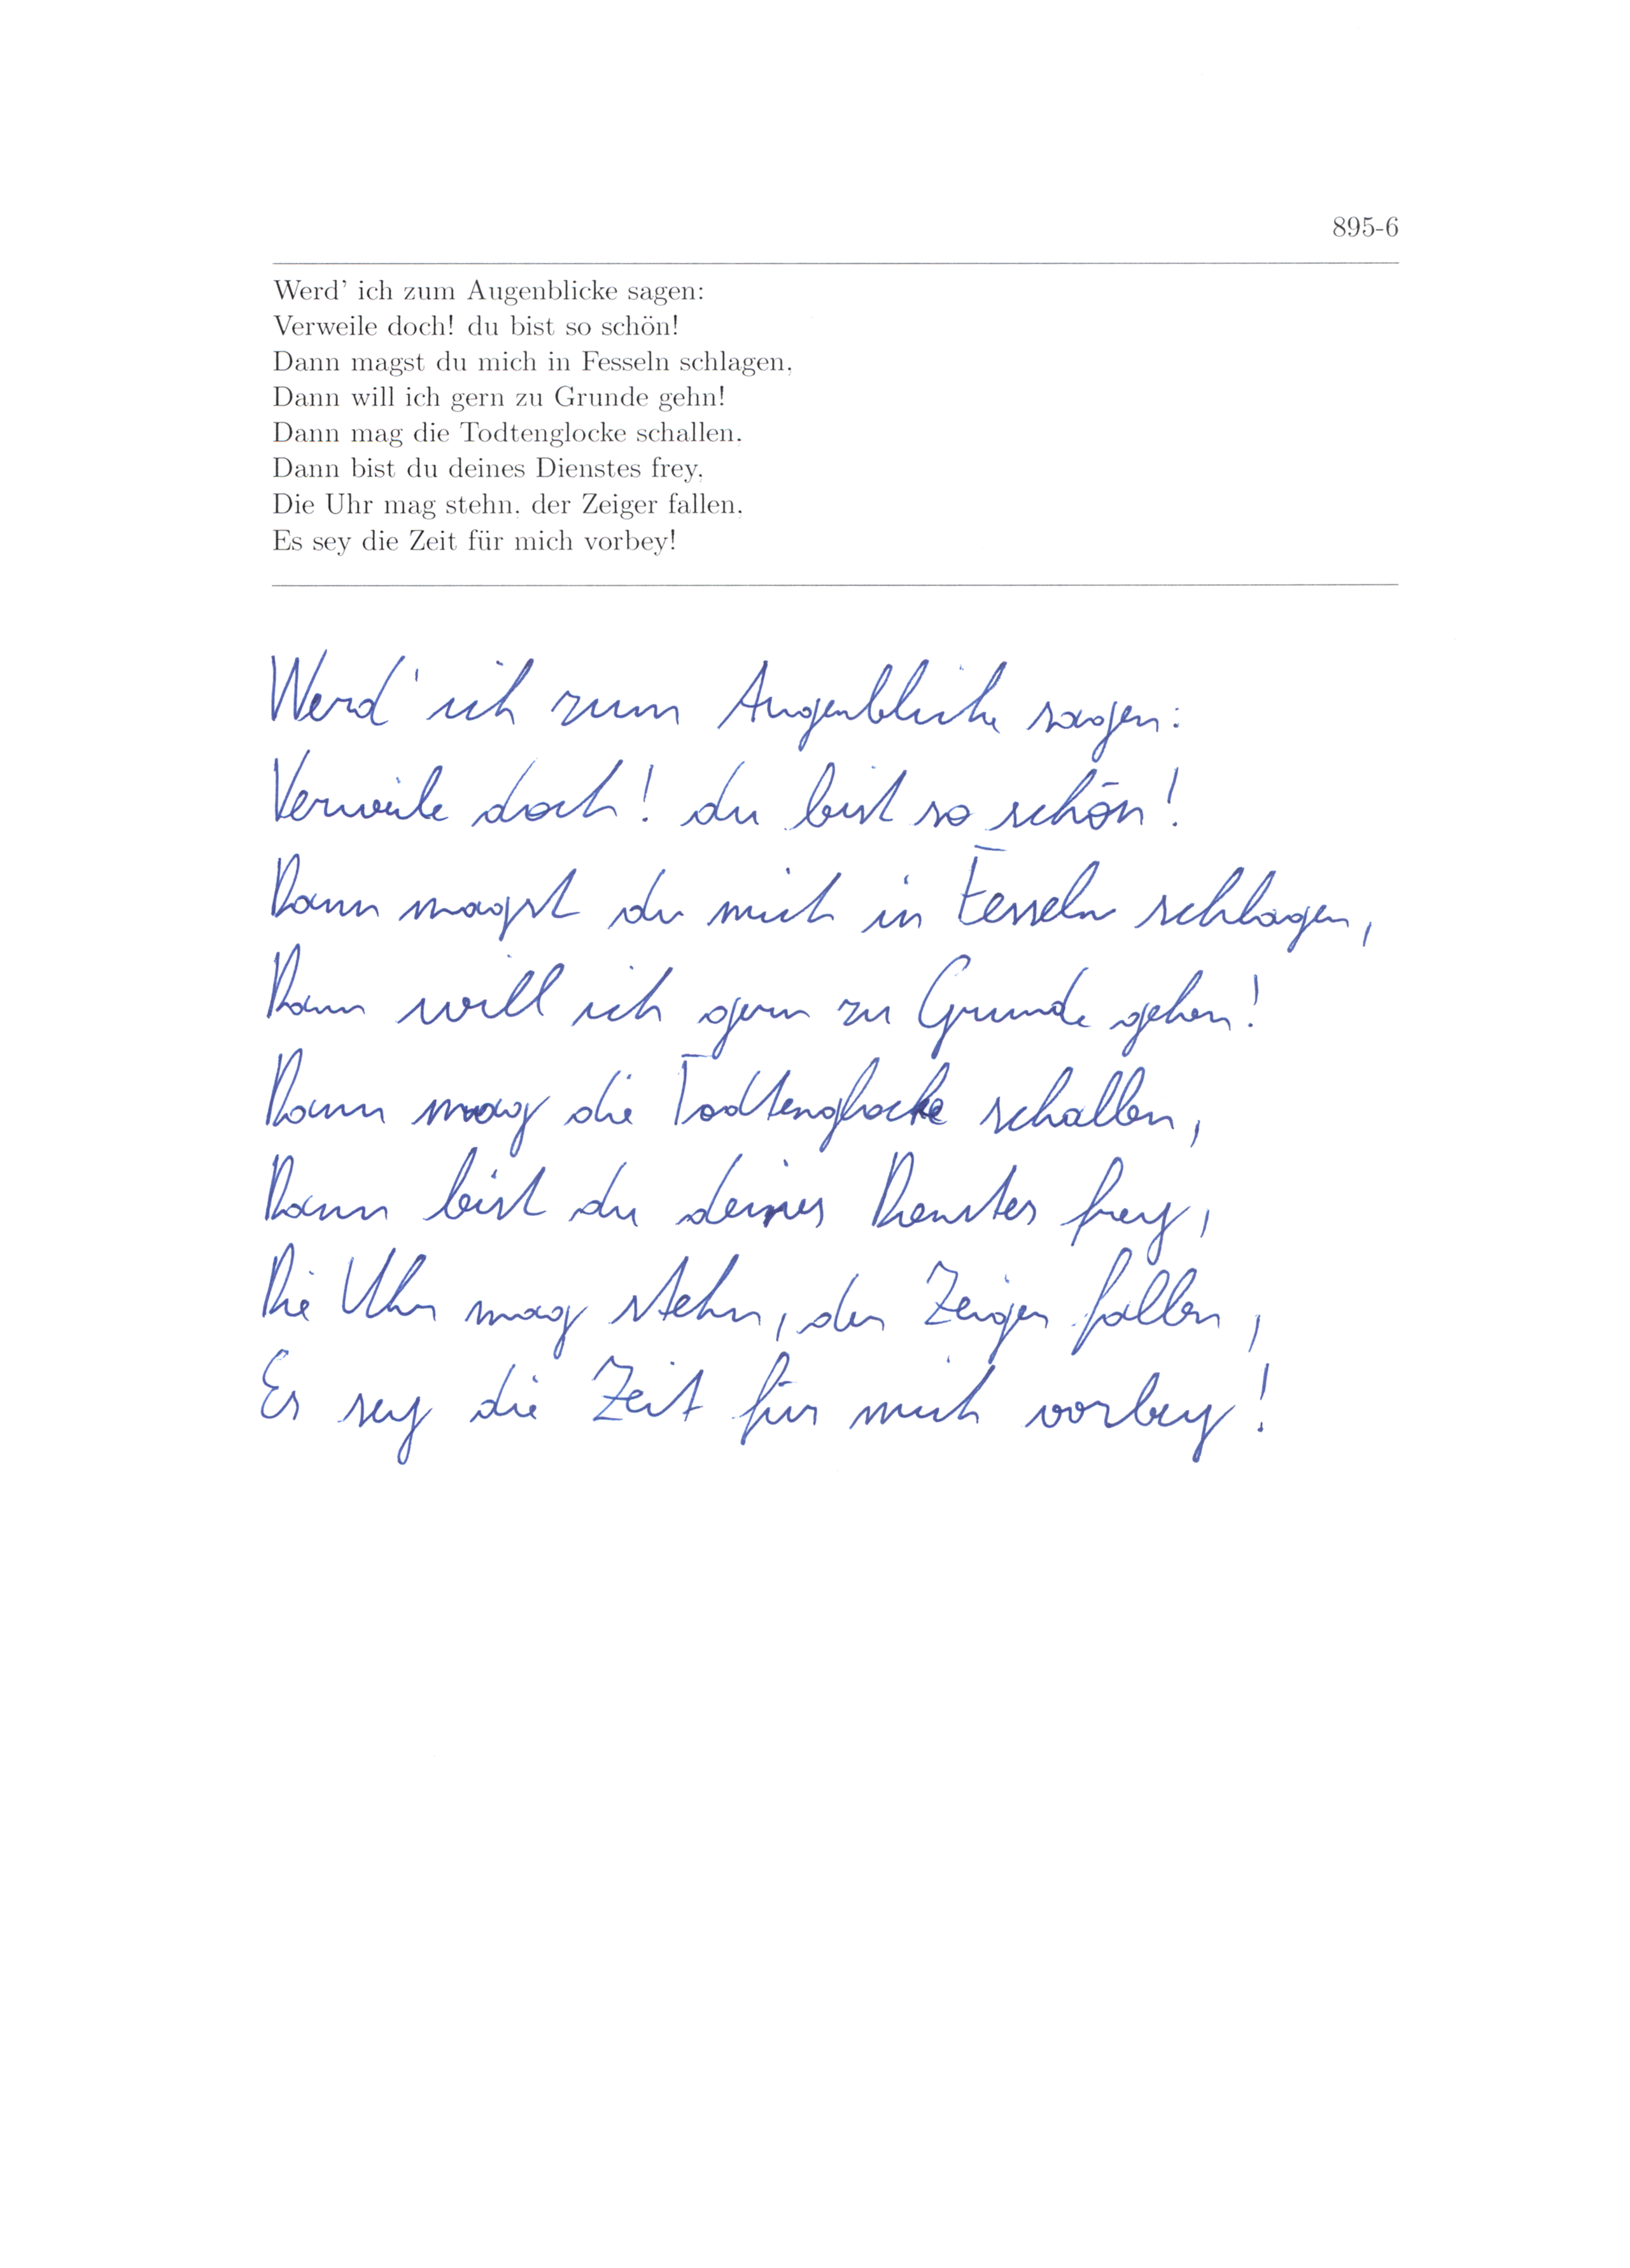 895-6
Werd' ich zum Augenblicke sagen:
Verweile doch! du bist so schön!
Dann magst du mich in Fesseln schlagen,
Dann will ich gern zu Grunde gehn!
Dann mag die Todtenglocke schallen,
Dann bist du deines Dienstes frey,
Die Uhr mag stehn, der Zeiger fallen,
Es sey die Zeit für mich vorbey!
Werd' ich zum Augenblicke sagen:
Verweile doch! du bist so schön!
Dann magst du mich in Fesseln schlagen,
Dann will ich gern zu Grunde gehen!
Dann mag die Todtenglocke schallen,
Dann bist du deines Dienstes frey,
Die Uhr mag stehn, der Zeiger fallen,
Es sey die Zeit für mich vorbey!